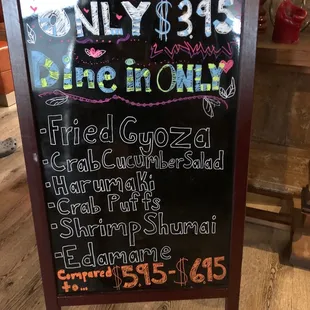 ONLY $3.95
Dine in ONLY
-Fried Gyoza
-Crab Cucumber Salad
-Harumaki
-Crab Puffs
-Shrimp Shumai
-Edamame
Compared
to... $5.95-$6.95